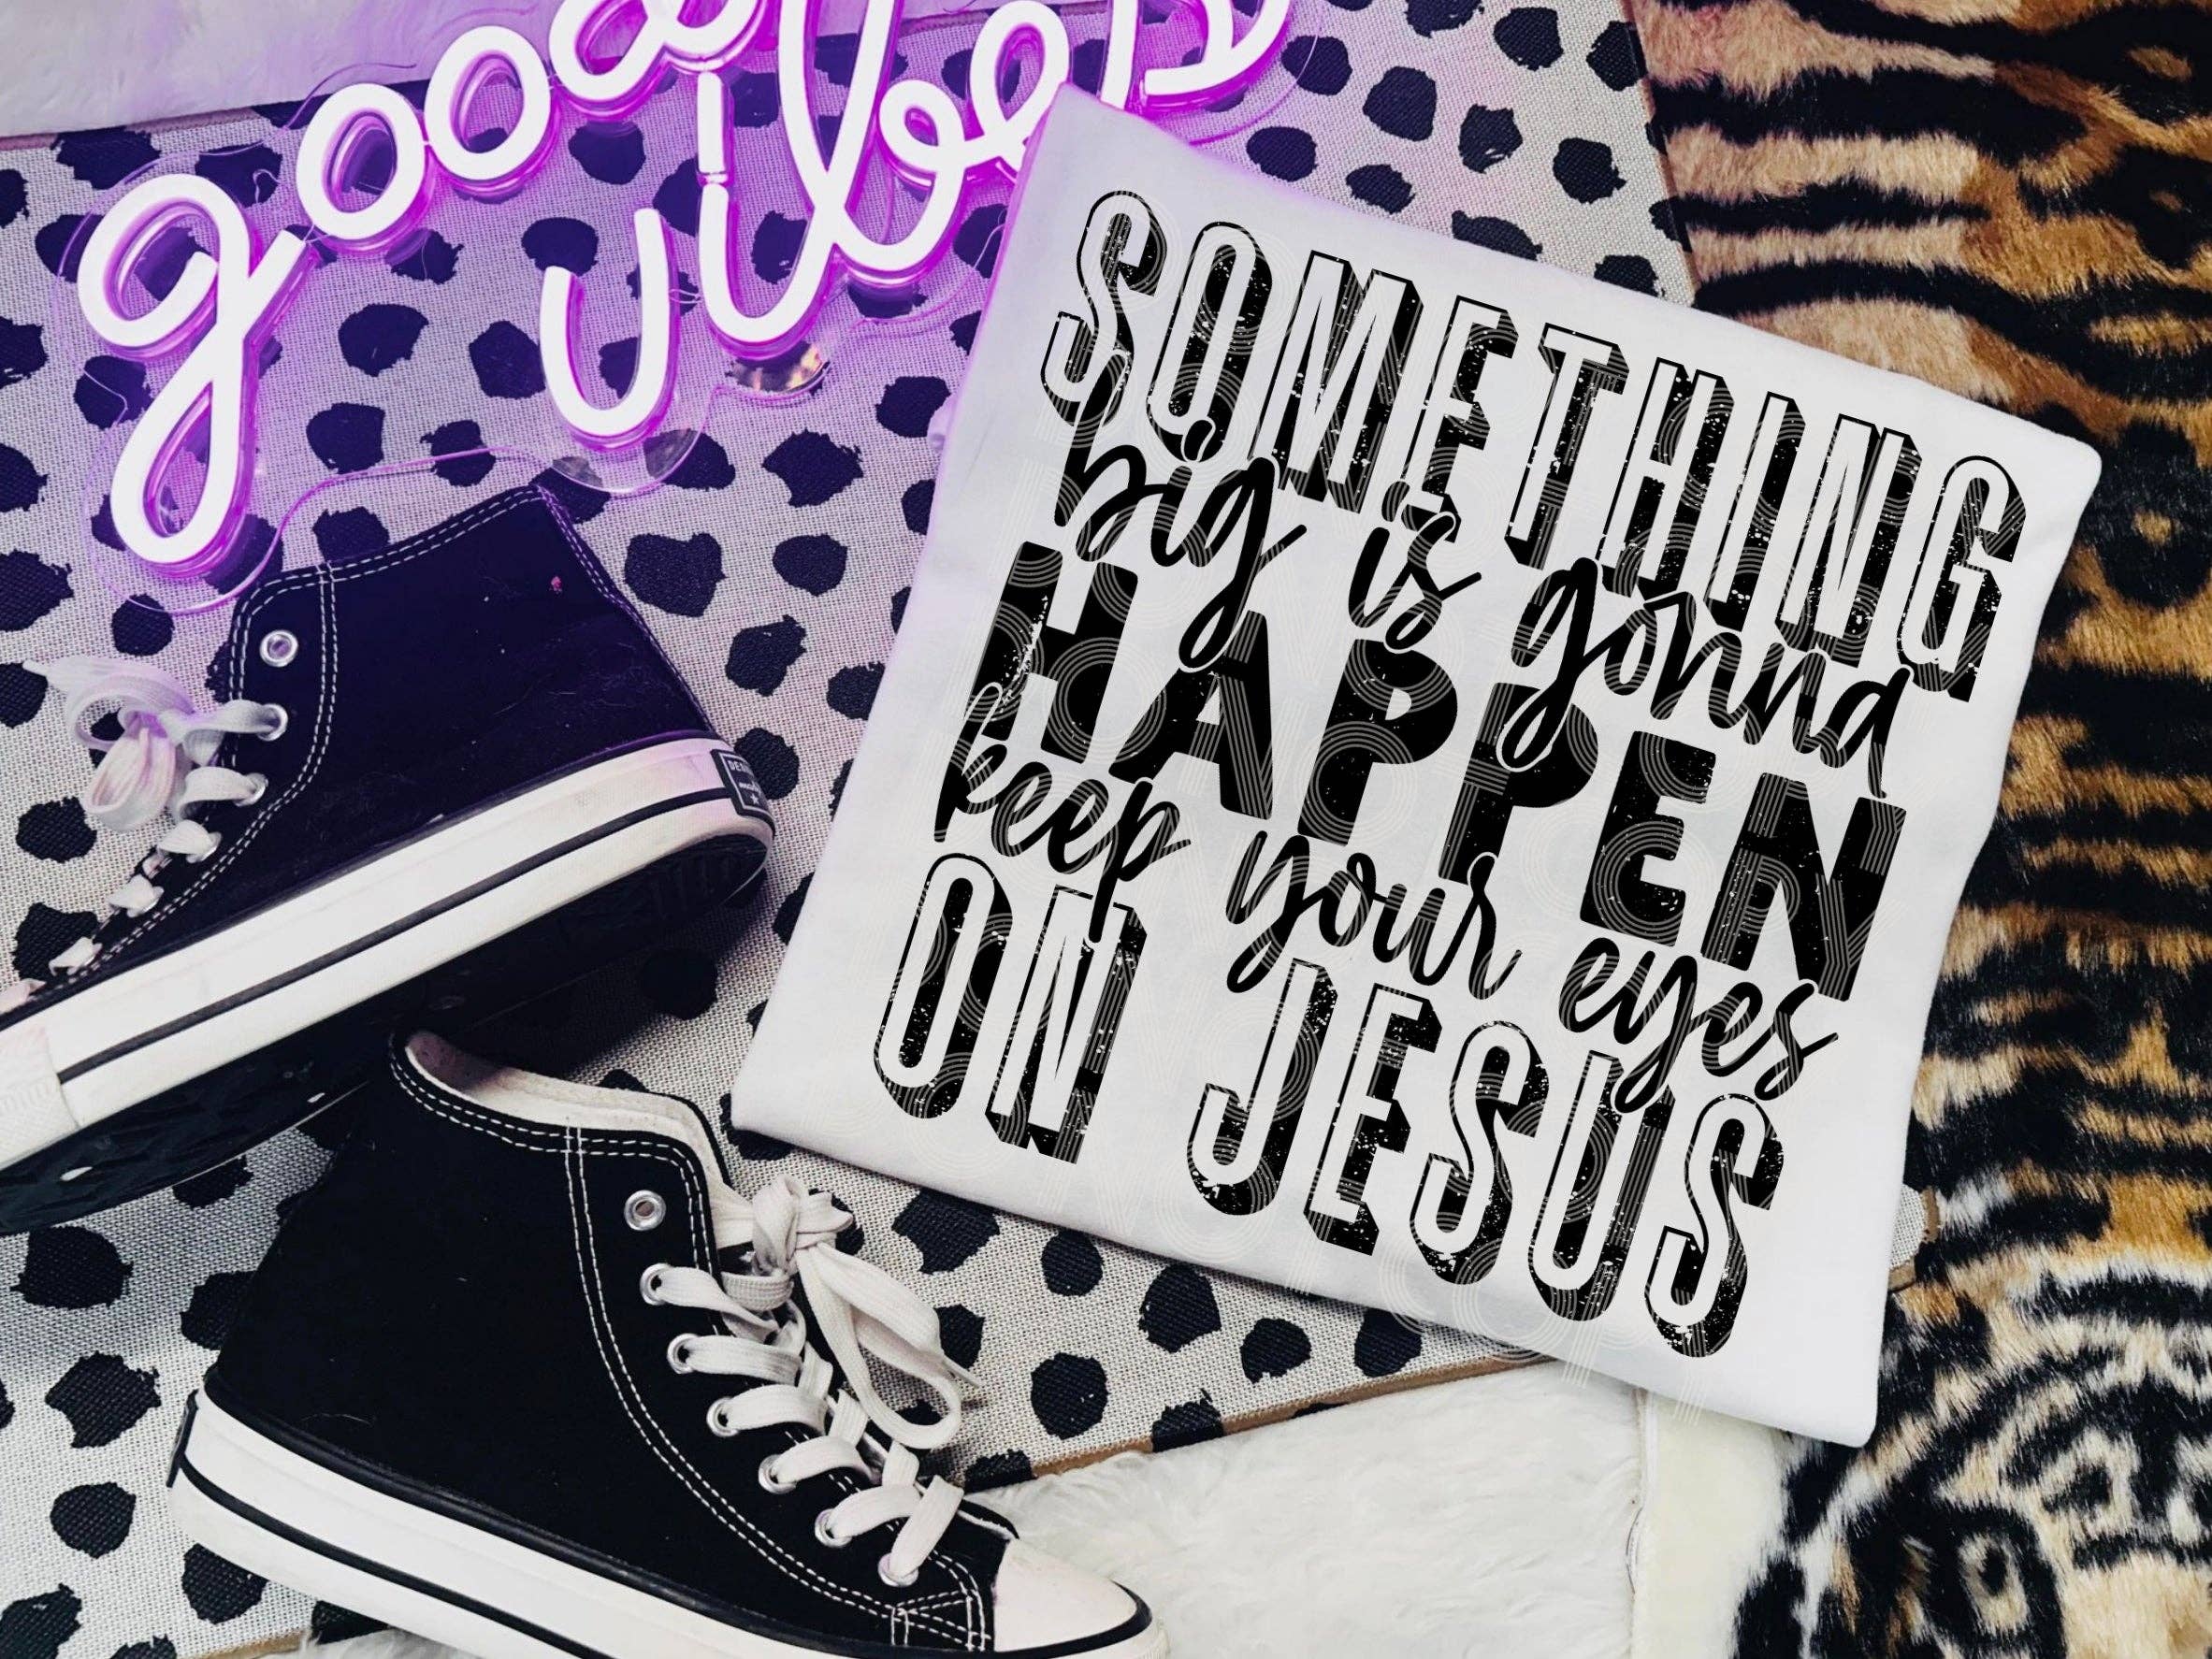 good
vibes
SOMETHING
big is gonna
HAPPEN
keep your eyes
ON JESUS